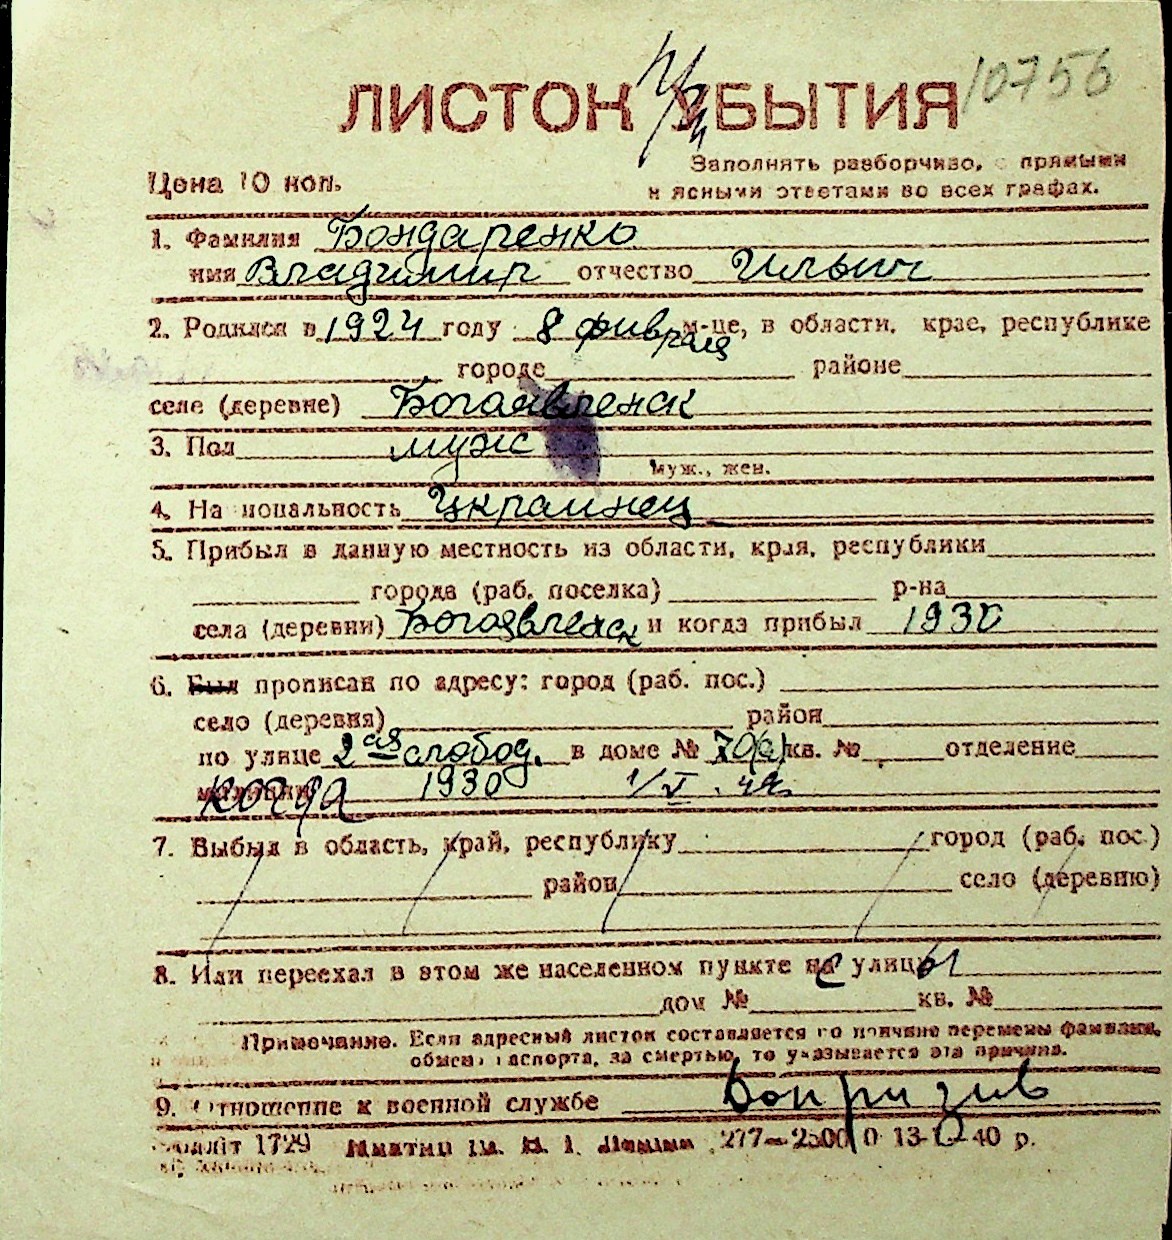 10756
ЛИСТОК УБЫТИЯ
Заполнять разборчиво, с прямыми
Цена 10 коп.
и ясными ответами во всех графах.
1. Фамилия Бондаренко
имя Владимир отчество Ильич
2. Родился в 1924 году 8 февраля м-це, в области, крае, республике
городе районе
селе (деревне) Богоявленск
3. Пол муж
муж., жен.
4. Национальность Украинец
5. Прибыл в данную местность из области, края, республики
города (раб. поселка) р-на
села (деревни) Богоявленск и когда прибыл 1930
6. Был прописан по адресу: город (раб. пос.)
село (деревня) район
по улице 2ая слобод. в доме № 70(а) кв. № отделение
милиции когда 1930 1/V 44
7. Выбыл в область, край, республику город (раб. пос.)
район село (деревню)
8. Или переехал в этом же населенном пункте на с улицы
дом № кв. №
Примечание. Если адресный листок составляется по причине перемены фамилии,
обмена паспорта, за смертью, то указывается эта причина.
9. Отношение к военной службе допризив
1729 277—25000 13-
40 р.